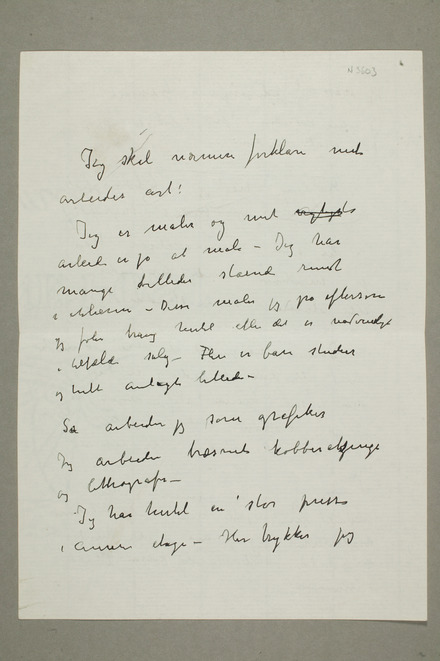 N 3603
Jeg skal nærmere forklare mit
arbeides art:
Jeg er maler og mit
arbeide er jo at male – Jeg har
mange billeder staaende rundt
i atelierene – Disse maler jeg på eftersom
jeg føler trang hertil eller det er nødvendigt
i tilfælde salg – Flere er bare studier
og helt anlagte billeder –
Så arbeider jeg som grafiker
Jeg arbeider træsnit kobberætzninge
og lithografi –
Jeg har hertil en stor presse
i annen etage – Her trykker jeg